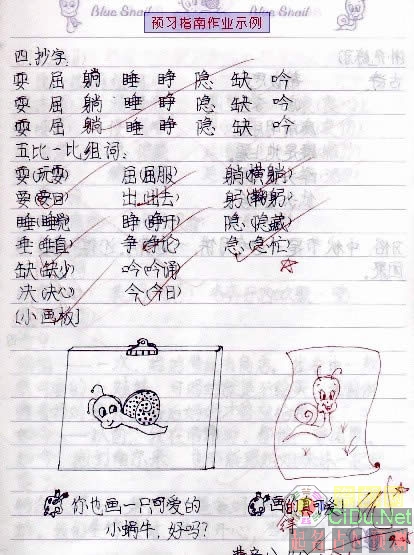 Blue Snail
Blue Snail
预习指南作业示例
四.抄字:
耍 屈 躺 睡 睁 隐 缺 吟
耍 屈 躺 睡 睁 隐 缺 吟
耍 屈 躺 睡 睁 隐 缺 吟
五比一比组词:
耍(玩耍) 屈(屈服) 躺(横躺)
要(要曰) 出(出去) 躬(鞠躬)
睡(睡觉) 睁(睁开) 隐(隐藏)
垂(垂直) 争(争论) 急(急忙)
缺(缺少) 吟(吟诵)
决(决心) 今(今日)
[小画板]
你也画一只可爱的
小蜗牛，好吗?
画的真可爱
CiDu.Net